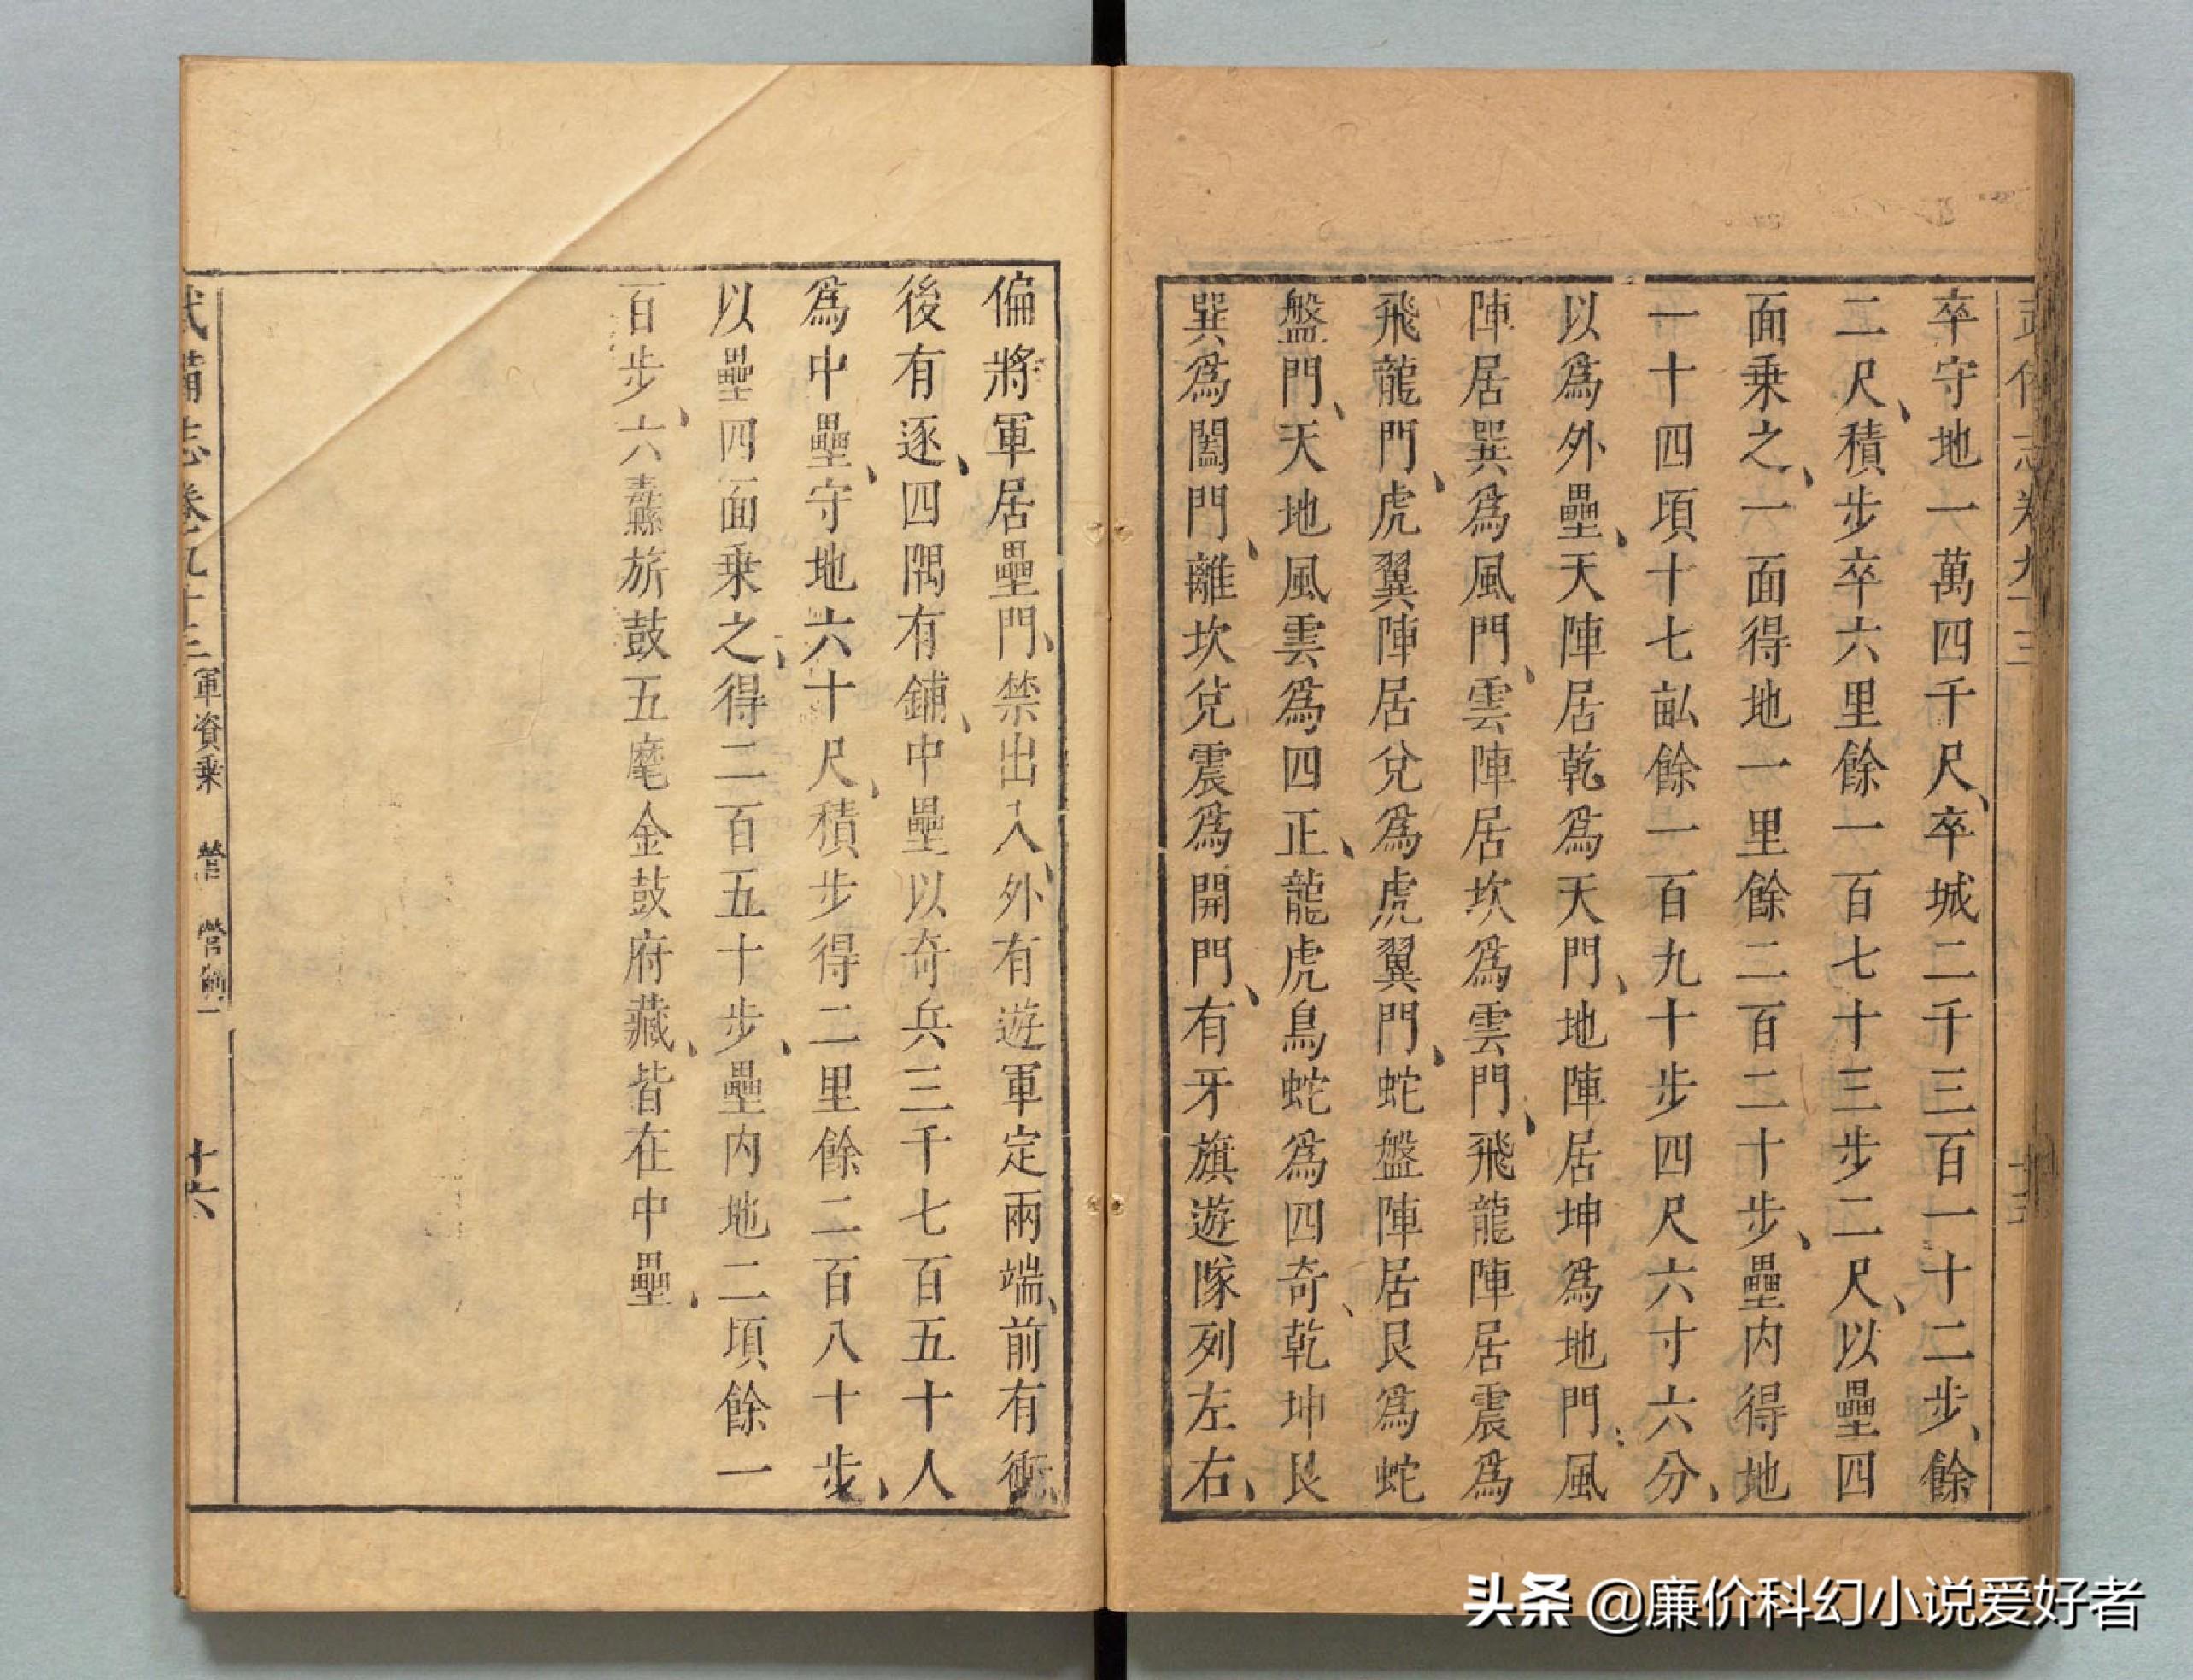 卒守地一萬四千尺、卒城二千三百一十二步、餘
二尺、積步卒六里餘一百七十三步二尺、以壘四
面乘之、一面得地一里餘二百二十步、壘内得地
一十四頃十七畝餘一百九十步四尺六寸六分、
以爲外壘、天陣居乾爲天門、地陣居坤爲地門、風
陣居巽爲風門、雲陣居坎爲雲門、飛龍陣居震爲
飛龍門、虎翼陣居兌爲虎翼門、蛇盤陣居艮爲蛇
盤門、天地風雲爲四正、龍虎鳥蛇爲四奇、乾坤艮
巽爲闔門、離坎兌震爲開門、有牙旗遊隊列左右、
偏將軍居壘門、禁出入、外有遊軍定兩端、前有衝、
後有逐、四隅有鋪、中壘以奇兵三千七百五十人
爲中壘、守地六十尺、積步得二里餘二百八十步、
以壘四面乘之、得二百五十步、壘内地二頃餘一
百步、六纛旂鼓五麾金鼓府藏、皆在中壘、
備志卷九十三 軍資乘 營 營制一 十六
头条 @廉价科幻小说爱好者